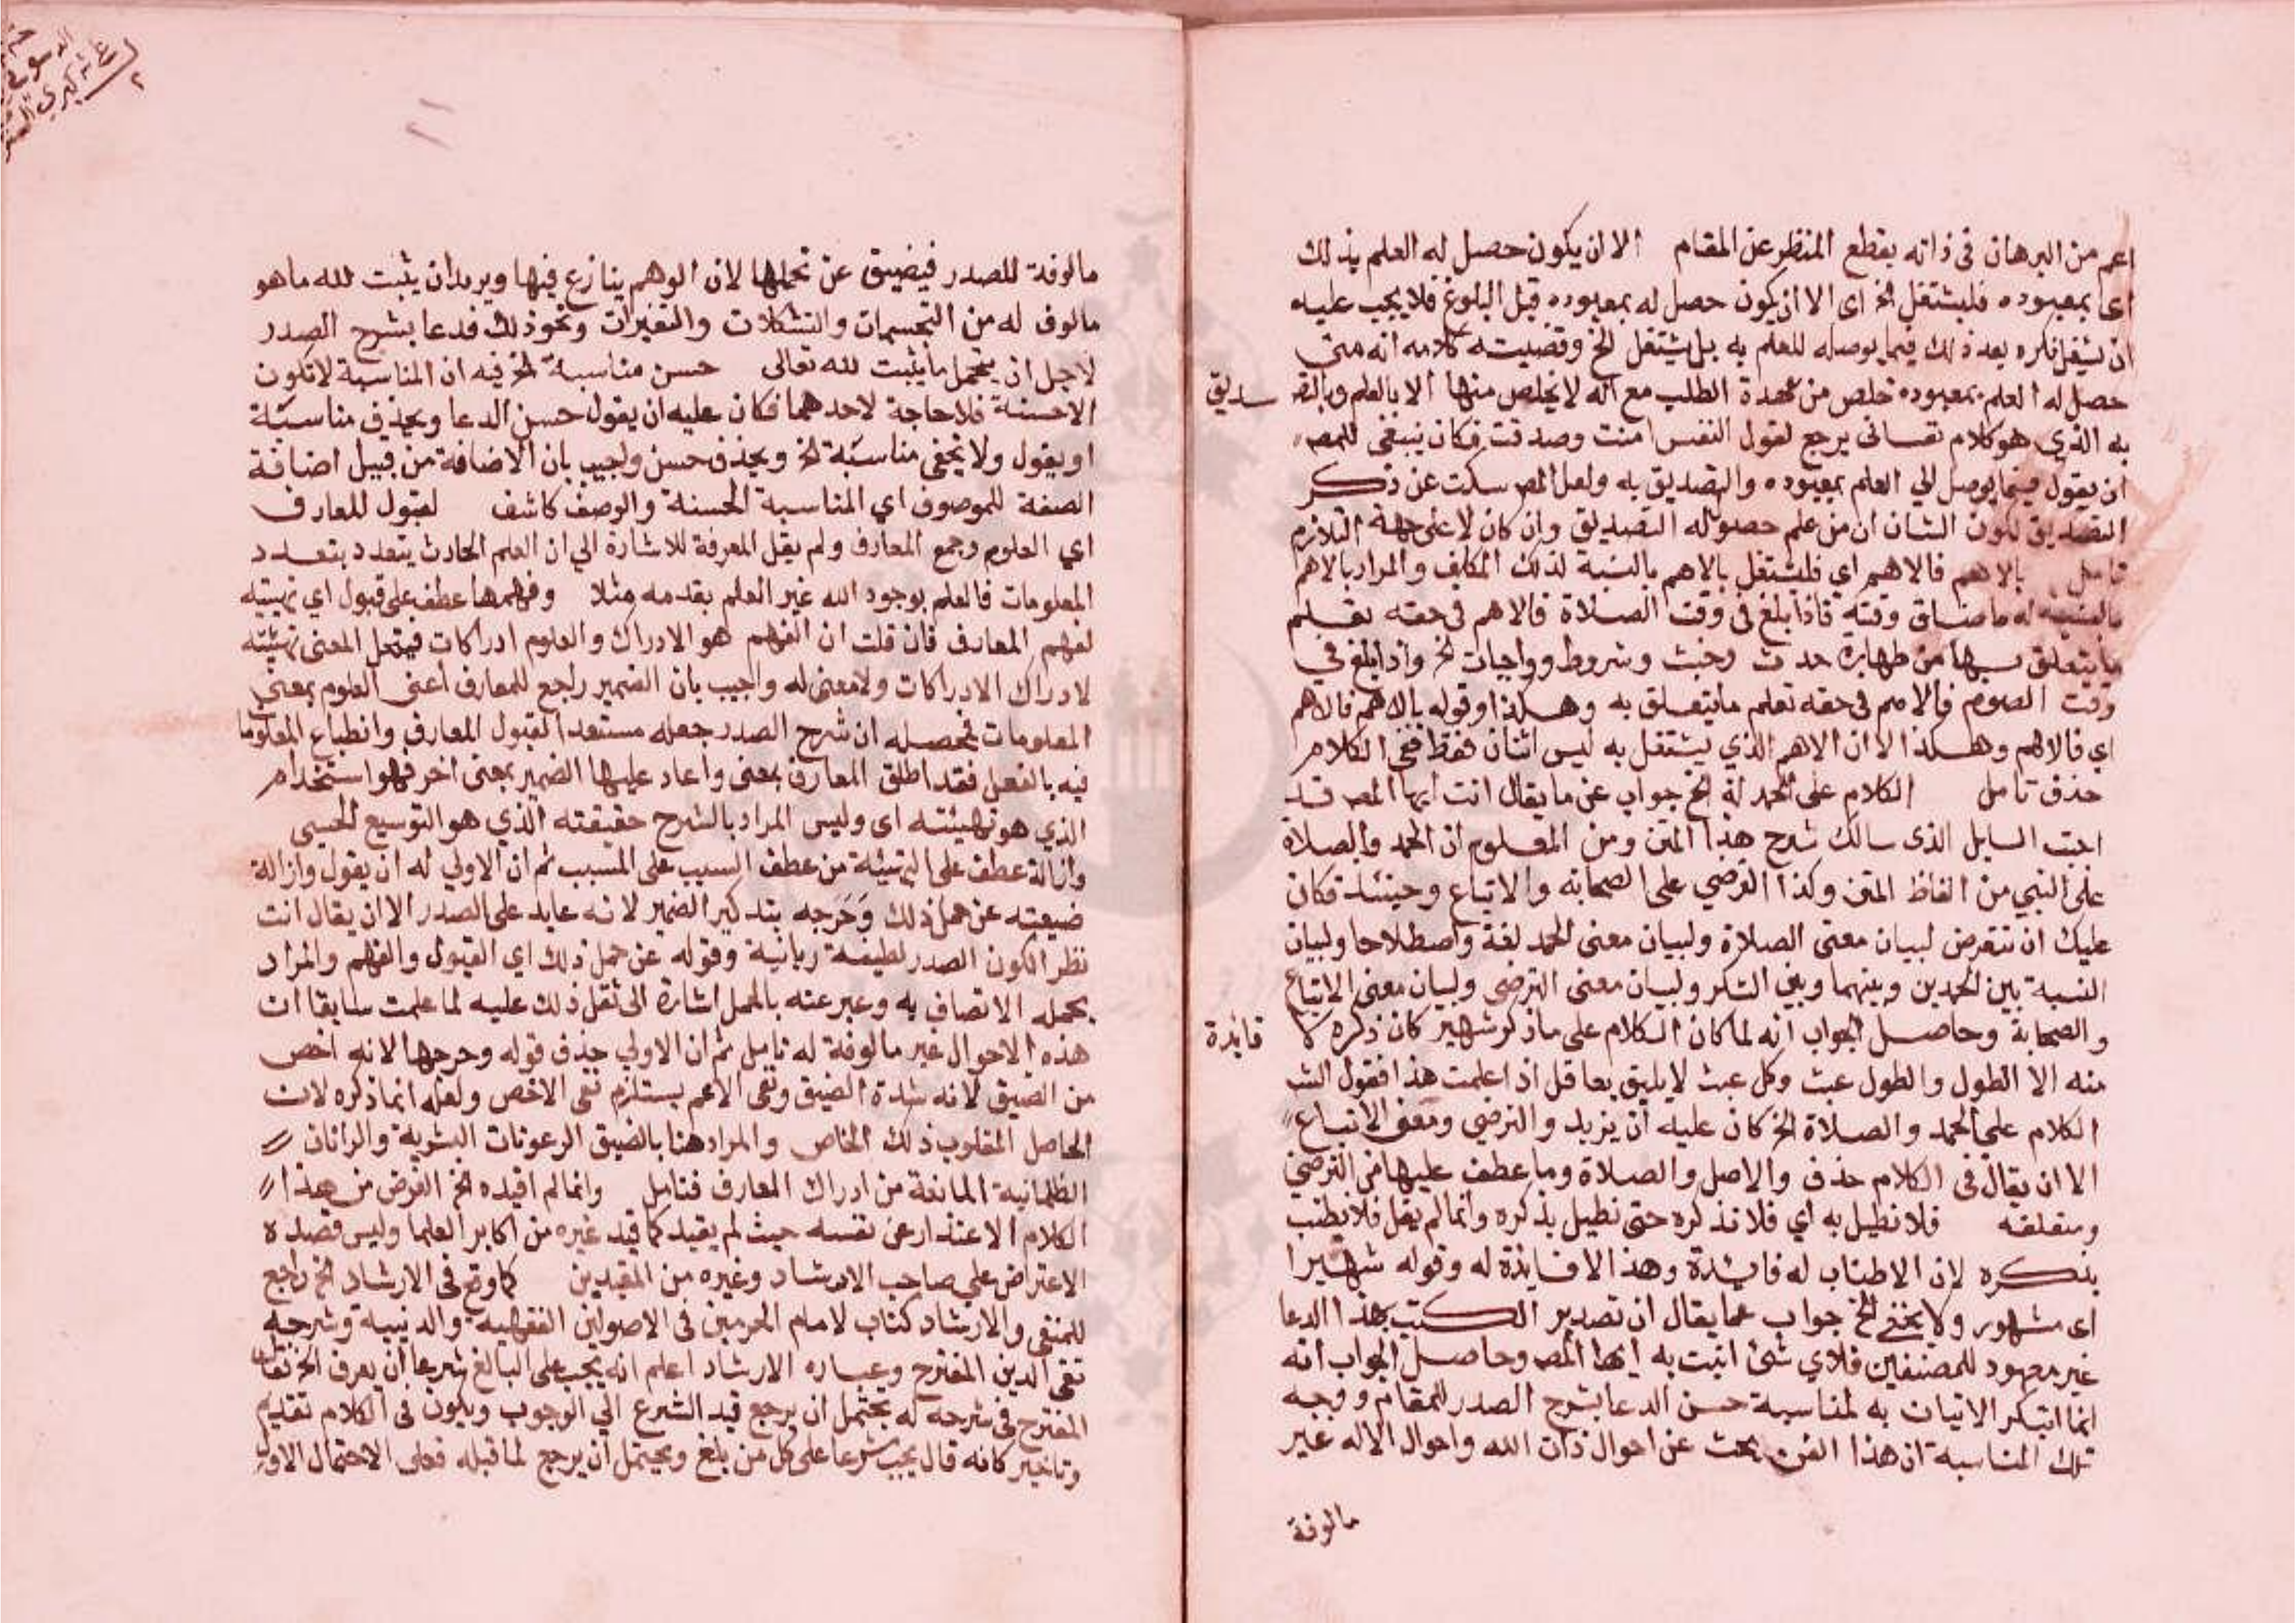 اعم من البرهان فى ذاته بقطع النظر عن المقام الا ان يكون حصل له العلم بذلك
اى بمعبوده فليشتغل الخ اى الا ان يكون حصل له بمعبوده قبل البلوغ فلا يجب عليه
ان يشغل فكره بعد ذلك فيما يوصله للعلم به بل يشتغل الخ وقضيته كلامه انه متى
حصل له العلم بمعبوده خلص من عهدة الطلب مع انه لا يخلص منها الا بالعلم وبالتصديق
به الذي هو كلام نفسانى يرجع لقول النفس امنت وصدقت فكان ينبغى للمص
ان يقول فيما يوصل الي العلم بمعبوده والتصديق به ولعل المص سكت عن ذكر
التصديق لكون الشان ان من علم حصوله التصديق وان كان لا على جهة التلازم
تامل بالاهم فالاهم اي فليشتغل بالاهم بالنسبة لذلك المكلف والمراد بالاهم
بالنسبه له ما ضاق وقته فاذا بلغ فى وقت الصلاة فالاهم فى حقه تعلم
ما يتعلق بها من طهارة حدث وخبث وشروط وواجبات الخ واذا بلغ في
وقت الصوم فالاهم فى حقه تعلم ما يتعلق به وهكذا وقوله بالاهم فالاهم
اي فالاهم وهكذا لا ان الاهم الذي يشتغل به ليس اثنان فقط ففي الكلام
حذف تامل الكلام على الحمدلة الخ جواب عن ما يقال انت ايها المص قد
اجبت السايل الذى سالك شرح هذا المتن ومن المعلوم ان الحمد والصلاة
على النبي من الفاظ المتن وكذا الترضي على الصحابة والاتباع وحينئذ فكان
عليك ان تتعرض لبيان معنى الصلاة ولبيان معنى الحمد لغة واصطلاحا ولبيان
النسبة بين الحمدين وبينهما وبين الشكر ولبيان معنى الترضي ولبيان معنى الاتباع
والصحابة وحاصل الجواب انه لما كان الكلام على ما ذكر شهير كان ذكره لا فايدة
منه الا الطول والطول عبث وكل عبث لا يليق بعاقل اذا علمت هذا فقول الش
الكلام على الحمد والصلاة الخ كان عليه ان يزيد والترضي ومعنى الاتباع
الا ان يقال فى الكلام حذف والاصل والصلاة وما عطف عليها من الترضي
ومتعلقه فلا نطيل به اي فلا نذكره حتى نطيل بذكره وانما لم يقل فلا نطنب
بذكره لان الاطناب له فايدة وهذا لا فايدة له وقوله شهيرا
اى مشهور ولا يخفى الخ جواب عما يقال ان تصدير الكتب بهذا الدعا
غير معهود للمصنفين فلاي شئ اتيت به ايها المص وحاصل الجواب انه
انما ابتكر الاتيان به لمناسبة حسن الدعا بشرح الصدر للمقام ووجه
تلك المناسبة ان هذا الفن يبحث عن احوال ذات الله واحوال الاله غير
مالوفة
مالوفة للصدر فيضيق عن تحملها لان الوهم ينازع فيها ويريد ان يثبت لله ما هو
مالوف له من التجسمات والتشكلات والتغيرات ونحو ذلك فدعا بشرح الصدر
لاجل ان يتحمل ما يثبت لله تعالى حسن مناسبة الخ فيه ان المناسبة لا تكون
الا حسنة فلا حاجة لاحدهما فكان عليه ان يقول حسن الدعا ويحذف مناسبة
او يقول ولا يخفى مناسبة الخ ويحذف حسن واجيب بان الاضافة من قبيل اضافة
الصفة للموصوف اي المناسبة الحسنة والوصف كاشف لقبول للمعارف
اي العلوم وجمع المعارف ولم يقل المعرفة للاشارة الي ان العلم الحادث يتعدد بتعدد
المعلومات فالعلم بوجود الله غير العلم بقدمه مثلا وفهمها عطف على قبول اي تهيئته
لفهم المعارف فان قلت ان الفهم هو الادراك والعلوم ادراكات فينحل المعنى تهيئته
لادراك الادراكات ولا معنى له واجيب بان الضمير راجع للمعارف اعنى العلوم بمعني
المعلومات فحصله ان شرح الصدر جعله مستعدا لقبول المعارف وانطباع المعلوما
فيه بالفعل فقد اطلق المعارف بمعنى واعاد عليها الضمير بمعنى اخر فهو استخدام
الذي هو تهيئته اى وليس المراد بالشرح حقيقته الذي هو التوسيع الحسي
وازالة عطف على التهيئة من عطف السبب على المسبب ثم ان الاولي له ان يقول وازالة
ضيقه عن حمل ذلك وحرجه بتذكير الضمير لانه عايد على الصدر الا ان يقال انت
نظرا لكون الصدر لطيفة ربانية وقوله عن حمل ذلك اي القبول والفهم والمراد
بحمله الاتصاف به وعبر عنه بالحمل اشارة الى ثقل ذلك عليه لما علمت سابقا ان
هذه الاحوال غير مالوفة له تامل ثم ان الاولي حذف قوله وحرجها لانه اخص
من الضيق لانه شدة الضيق ونفى الاعم يستلزم نفى الاخص ولعله انما ذكره لان
الحاصل المقلوب ذلك الخاص والمراد هنا بالضيق الرعونات البشرية والرانان
الظلمانية المانعة من ادراك المعارف فتامل وانما لم اقيده الخ الغرض من هذا
الكلام الاعتذار عن نفسه حيث لم يقيد كما قيد غيره من اكابر العلما وليس قصده
الاعتراض علي صاحب الارشاد وغيره من المقيدين كما وقع فى الارشاد الخ راجع
للمنفى والارشاد كتاب لامام الحرمين فى الاصولين الفقهية والدينية وشرحه
تقى الدين المقترح وعباره الارشاد اعلم انه يجب على البالغ شرعا ان يعرف الخ نقال
المقترح فى شرحه له يحتمل ان يرجع قيد الشرع الي الوجوب ويكون فى الكلام تقديم
وتاخير كانه قال يجب شرعا على كل من بلغ ويحتمل ان يرجع لما قبله فعلى الاحتمال الاول